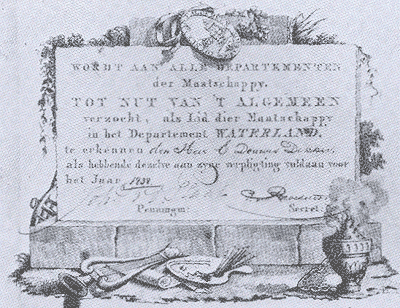 WORDT AAN ALLE DEPARTEMENTEN
der Maatschappy.
TOT NUT VAN 'T ALGEMEEN
verzocht, als Lid dier Maatschappy
in het Departement WATERLAND.
te erkennen den Heer
als hebbende dezelve aan zyne verpligting voldaan voor
het Jaar 1838
Penningm. Secret.